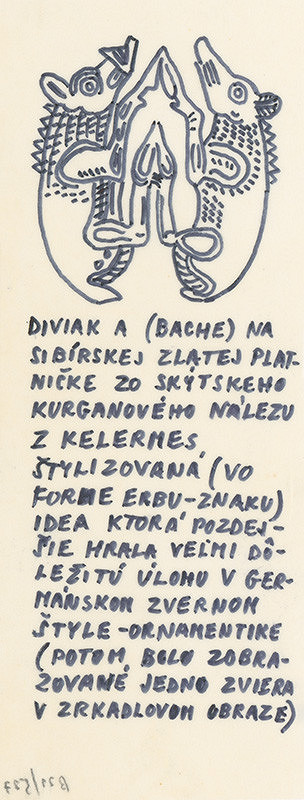 DIVIAK A (BACHE) NA
SIBÍRSKEJ ZLATEJ PLAT-
NIČKE ZO SKÝTSKEHO
KURGANOVÉHO NÁLEZU
Z KELERMES,
ŠTYLIZOVANÁ (VO
FORME ERBU-ZNAKU)
IDEA KTORÁ POZDEJ-
ŠIE HRALA VEĽMI DÔ-
LEŽITÚ ÚLOHU V GER-
MÁNSKOM ZVERNOM
ŠTYLE-ORNAMENTIKE
(POTOM BOLO ZOBRA-
ZOVANÉ JEDNO ZVIERA
V ZRKADLOVOM OBRAZE)